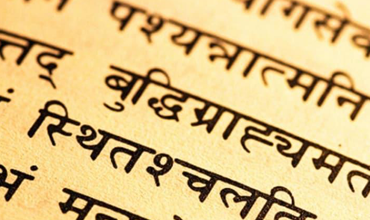 गसेव
पश्यन्नात्मनि
त्तद् बुद्धिग्राह्यमत
स्थितश्चलति
भं